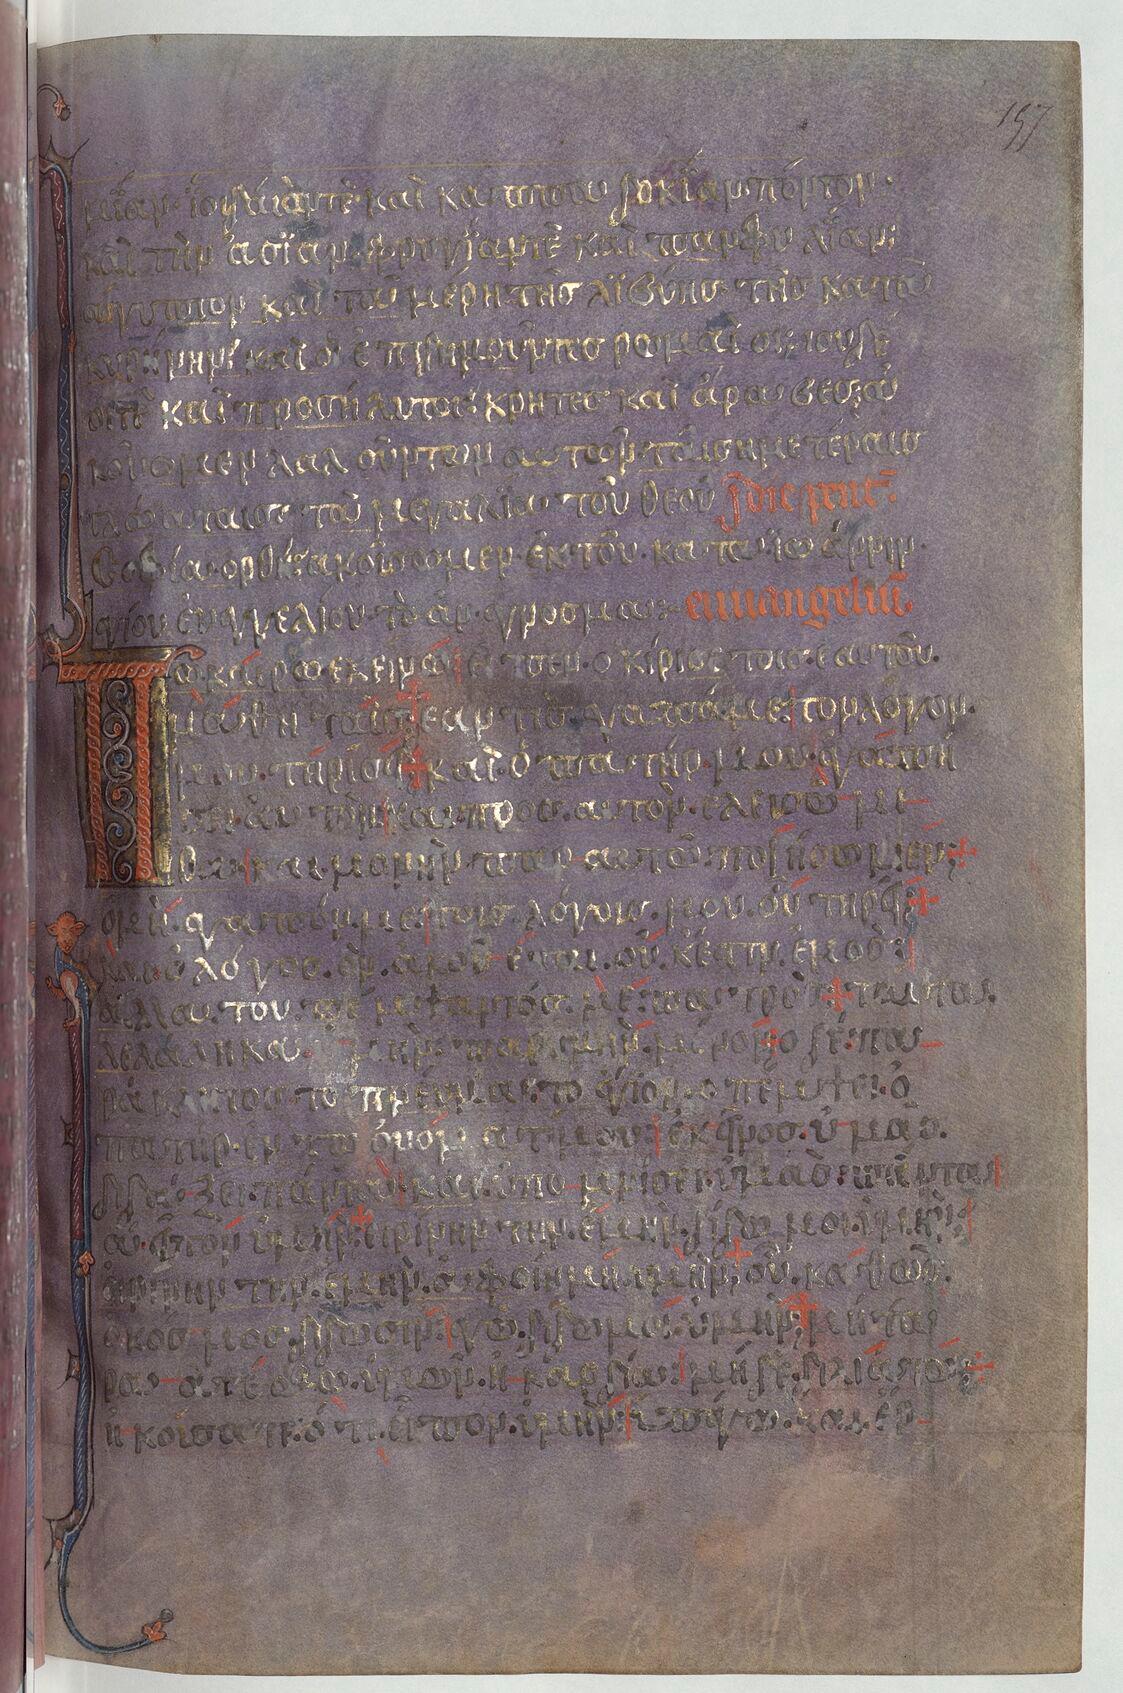 157
μίαν· ἰουδαίαντὲ καὶ κα πποω δοκΐαν πόντον·
καὶ τὴν ἀσΐαν φρυγΐαντὲ καὶ παμφυ λίαν;
αἴγυπτον καὶ τοῦ μέρη τῆσ λϊβύησ τῆσ κατοῦ
κυρήνην· καὶ οἱ ἐ πιδημοῦντεσ ρωμαῖ οι; ιουδέ
οιτὲ καὶ προσήλυτοι· κρῆτεσ καὶ ἄρα βεσ; ἀ
κούωμεν λαλ οῦντων αυτων τοῖσ ημετέραισ
γλώσσαισ· τοῦ μεγαλία· τοῦ θεοῦ
Σοφία· ορθί· ακούσομεν· ἐκ τοῦ· κα τα· ϊω άννην·
ἁγίου ἐυαγγελίου· τὸ ἀν· άγνοσμα: euuangeliū
ω· καιρω εκείνω· εἶ πεν· ο κίριοσ· τοισ· εαυτοῦ·
μαθη ταισ· εαν· τισ· αγαπᾶ με· τον λόγον·
μου· τηρίσι· καὶ· ὁ πα τήρ· μου· ἀγαπή
σει· αυ τὸν· και· προσ· αυτὸν· ελευσώ με
θα· και μονὴν· παρ αυτῶ ποιήσωμεν;
ὁ μὴ· αγαπόν με· τοισ· λόγουσ· μου· οὐ τηρῆ;
και ὁ λόγοσ· ὃν· ἀκού εται· οὐ κ ἔστιν· ἐμοὸ;
ἀλλα· του· πέ μψαντόσ· μὲ· πα τρὸσ· ταυτα·
λελάληκα· ὑμὴν· παρ· υμὴν· μένον ὁ δὲ· πα
ράκλιτοσ· το πνεύμα· το ἅγιον· ο πέμψει· ὁ
πατήρ· ἐν· τω ὀνόμ ατι μου· ἐκῆνοσ· ὑ μασ·
διδάξει· πάντα· καὶ· ὑπο μνίσει· ὑμᾶσ· πάντα
ἁ· εἶπον ὑμὴν· ιρίνην την· ἐμὴν· δίδω μοι· ὑμὴν;
ιρινην την· ἐμὴν· ἀ φοίημι· ὑμὴν· οὐ· κα θωσ·
ὁ κοσ μοσ· δίδωσιν· γώ· δίδωμοι· ὑμὴν; μὴ τα
ρασ σέ σθω· υμῶν· ἡ καρδία· μηδὲ· διλιάτω·
ἠ κούσατε· ὅ τι· εἶ πον· ὑμὴν; ὑ πάγω· και· ἔρ